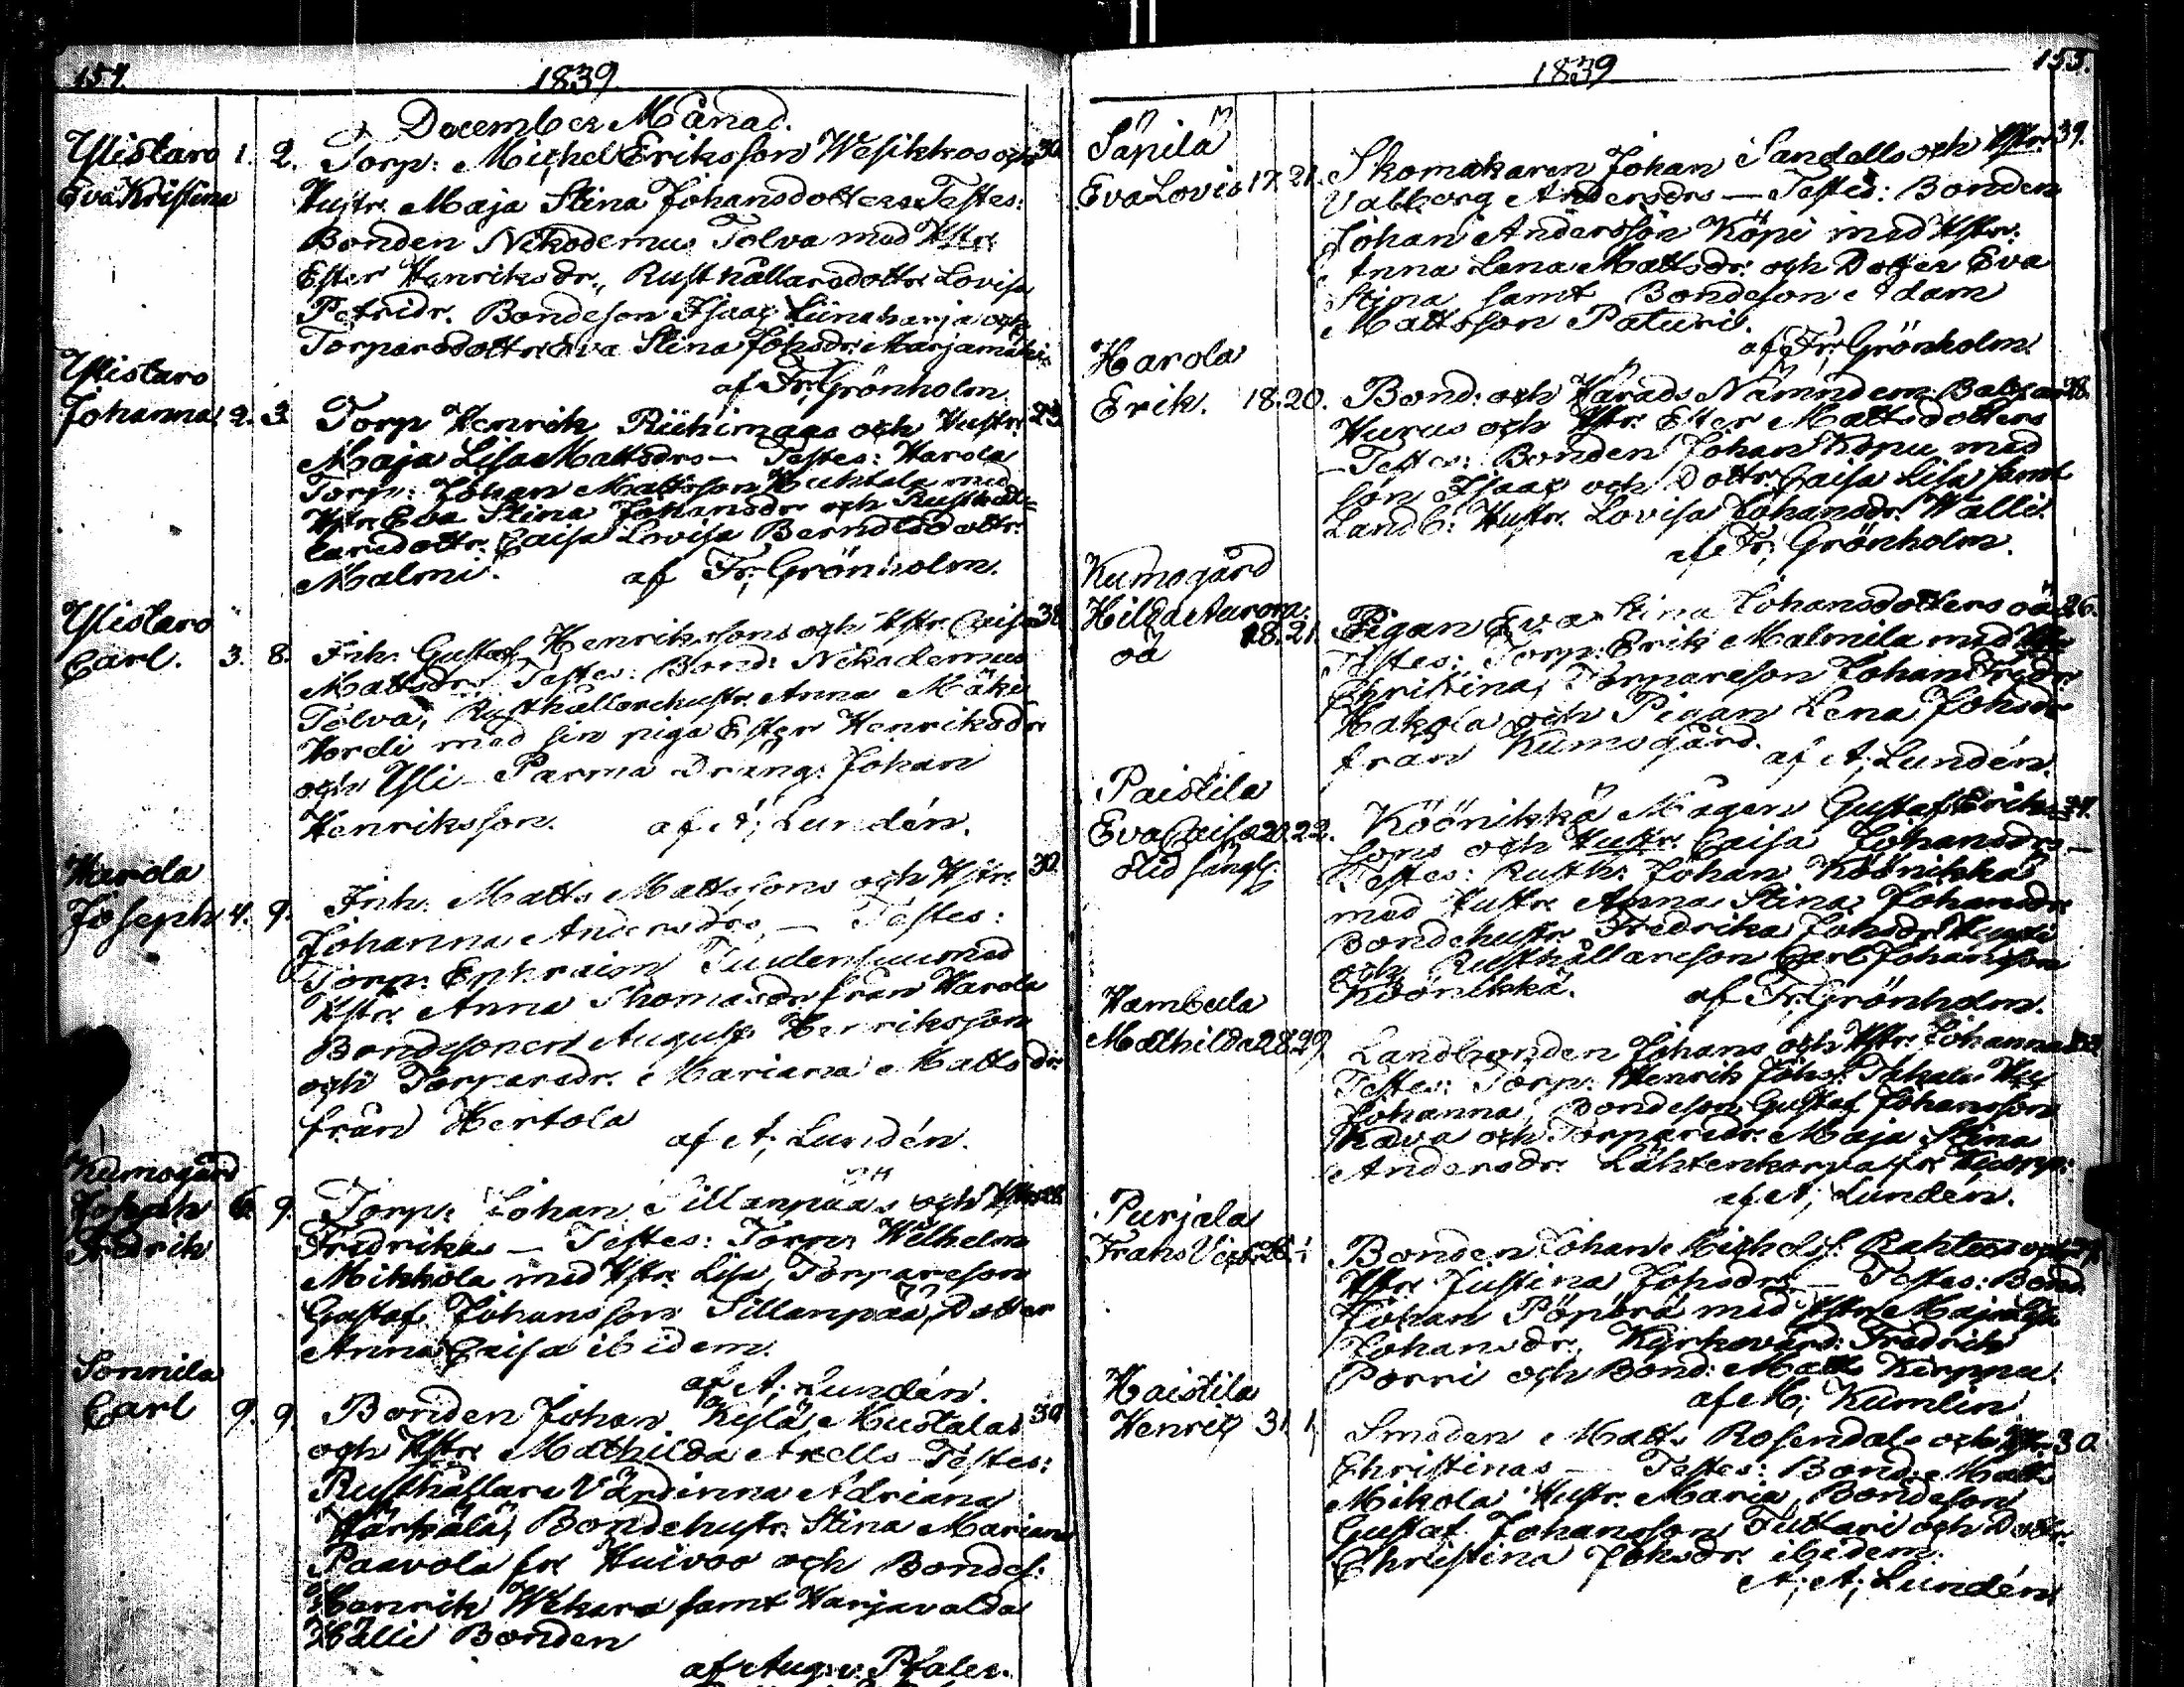 154.
1839.
December Månad.
Ylistaro 1. 2. Torp: Michel Eriksson Wesikkos och 30
Eva Kristina Hustr. Maja Stina Johansdotters Testes:
Bonden Nikodemus Tolva med Hstr.
Ester Henriksdr., Rusthållarsdottr. Lovisa
Petridr. Bondeson Isaac Liinaharja och
Torparsdottr. Eva Stina Johsdr. Marjamäki
af Fr; Grönholm
Ylistaro
Johanna 2. 3. Torp Henrik Riihimaas och Hustr. 23
Maja Lisa Mattsdrs — Testes: Harola
Torp: Johan Mattsson Huhtala med
Hstr. Eva Stina Johansdr. och Rusthål-
laredottr. Caisa Lovisa Berndtsdottr.
Malmi. af Fr; Grönholm.
Ylistaro
Carl. 3. 8. Inh. Gustaf Henrikssons och Hstr. Caisa 38
Mattsdrs Testes: Bond: Nikodemus
Tolva, Rusthållarehustr. Anna Mäki
Hordi med sin piga Ester Henriksdr
och Yli-Parma dräng: Johan
Henriksson. af A; Lundén.
Harola
Joseph 4. 9. Inh. Matts Mattssons och Hstr. 30
Johanna Andersdrs, — Testes:
Torp: Ephraim Tuulensuu med
Hstr. Anna Thomasdr. från Harola
Bondesonen August Henriksson
och Torparedr. Mariana Mattsdr.
från Hertola
af A; Lundén.
Kumogård
Joseph 6. 9. Torp: Johan Sillanpääs och Hstr 28
Fredrik Fredrikas — Testes: Torp: Wilhelm
Mikkola med Hstr. Lisa, Torpareson
Gustaf Johansson Sillanpää, Dotter
Anna Caisa ibidem.
af A; Lundén.
Sonnila
Carl 9. 9. Bonden Johan Kylä Mustalas 39
och Hstr. Mathilda Axells Testes:
Rusthållare Värdinna Adriana
Härkälä, Bondehustr. Stina Mariana
Paavola fr. Huivoo och Bondes:
Henrik Wekara samt Harjavalda
Hälli Bonden
af Aug. v. Pfaler.
1839
155.
Säpilä
Eva Lovis 17. 21. Skomakaren Johan Sandells och Hstr. 39.
Valborg Andersdrs — Testes: Bonden
Johan Andersson Köpi med Hstr.
Anna Lena Mattsdr. och Dotter Eva
Stina samt Bondeson Adam
Mattsson Paturi.
af Fr; Grönholm.
Harola
Erik. 18. 20. Bond: och Härads Nämndem: Baltzar 38.
Hurus och Hstr. Ester Mattsdotters
— Testes: Bonden Johan Köpu med
son Isaac och Dottr. Caisa Lisa samt
Landb: Hustr. Lovisa Johansdr. Walli.
af Fr; Grönholm.
Kumogård
Hilda Aurora 18. 21. Pigan Eva Stina Johansdotters oä 26.
oä Testes: Torp: Erik Malmila med Hstr
Christina, Torpareson Johan Fredr.
Hakola och Pigan Lena Johsdr
från Kumogård.
af A; Lundén.
Paistila
Eva Caisa 20. 22. Köönikkä Mågen Gustaf Eriks 34.
sons och Hustr. Caisa Johansdrs —
Testes: Rusth: Johan Köönikkä
med Hustr. Anna Stina Johansdr
Bondehustr. Fredrika Johsdr.
och Rusthållareson Carl Johansson
Köönikkä. af Fr; Grönholm.
Hambula
Mathilda 28. 29. Landbonden Johans och Hstr. Johannas
Testes: Torp: Henrik Johs:
Johanna, Bondeson Gustaf Johansson
Kava och Torparedr. Maja Stina
Andersdr. Lähtenkorva
af A; Lundén.
Purjala
Frans Bonden Johan Michelss: och
Hstr. Justina Johsdrs — Testes: Bond.
Johan Pöpörä med Hstr. Maja Lisa
Johansdr. Kyrkovärd: Fredrik
Porri och Bond: Matts Kirppu
af M; Kumlin
Haistila
Henric 31. 1. Smeden Matts Rosendals och Hstr. 30.
Christinas — Testes: Bond: Matts
Mikola Hustr. Maria, Bondeson
Gustaf Johansson Tuttari och Dottr.
Christina Johsdr. ibidem.
A; A; Lundén